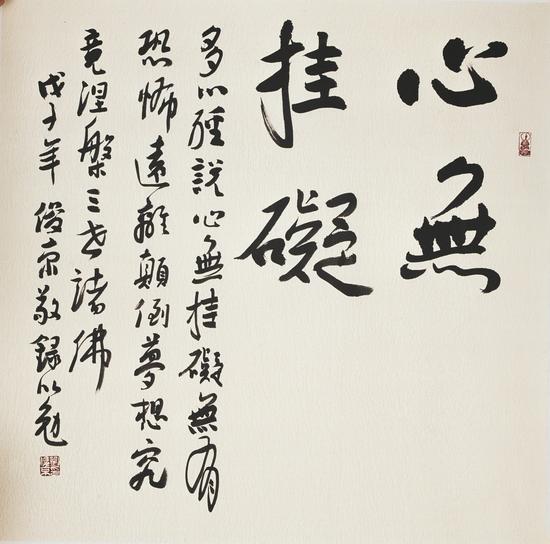 心無
挂礙
多心經説心無挂礙無有
恐怖遠離顛倒夢想究
竟涅槃三世諸佛
戊子年俊京敬録以勉